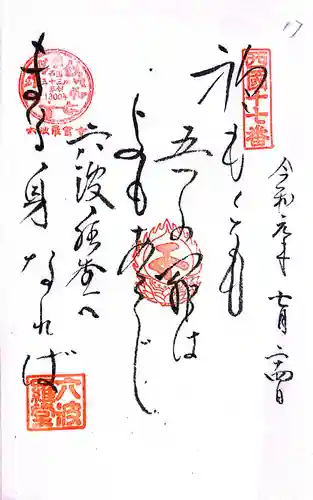 西國十七番
令和元年 七月二十四日
重くとも
五つの罪は
よもあらじ
六波羅堂へ
まゐる身なれば
六波
羅堂